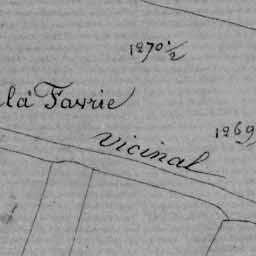 1270 1/2
la Favrie
vicinal
1269